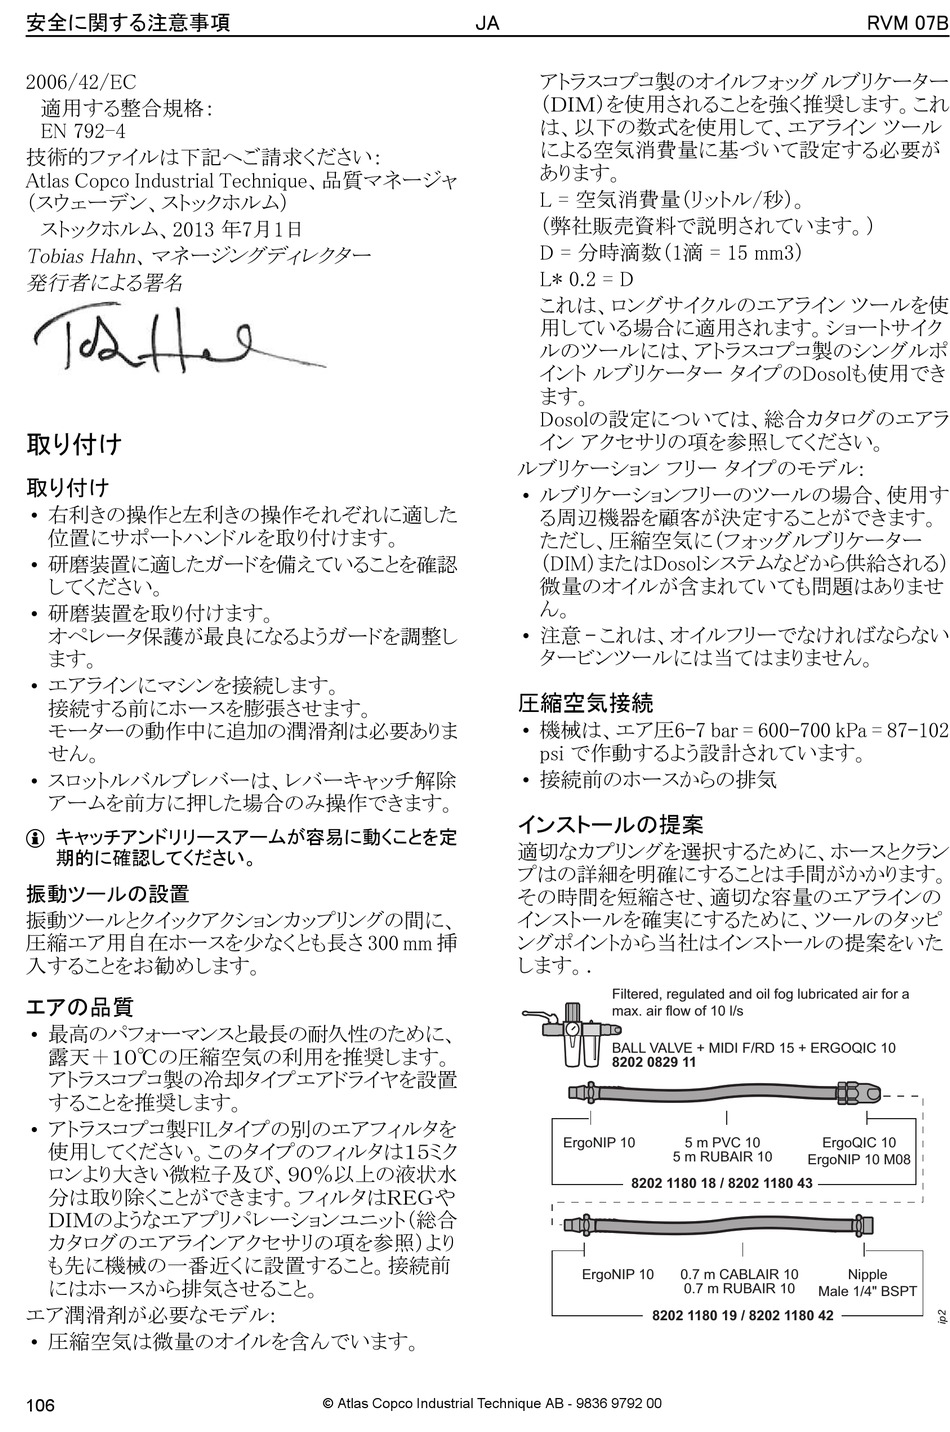 安全に関する注意事項
JA
RVM 07B
2006/42/EC
適用する整合規格：
EN 792-4
技術的ファイルは下記へご請求ください：
Atlas Copco Industrial Technique、品質マネージャ
（スウェーデン、ストックホルム）
ストックホルム、2013 年7月1日
Tobias Hahn、マネージングディレクター
発行者による署名
取り付け
取り付け
• 右利きの操作と左利きの操作それぞれに適した
位置にサポートハンドルを取り付けます。
• 研磨装置に適したガードを備えていることを確認
してください。
• 研磨装置を取り付けます。
オペレータ保護が最良になるようガードを調整し
ます。
• エアラインにマシンを接続します。
接続する前にホースを膨張させます。
モーターの動作中に追加の潤滑剤は必要ありま
せん。
• スロットルバルブレバーは、レバーキャッチ解除
アームを前方に押した場合のみ操作できます。
キャッチアンドリリースアームが容易に動くことを定
期的に確認してください。
振動ツールの設置
振動ツールとクイックアクションカップリングの間に、
圧縮エア用自在ホースを少なくとも長さ 300 mm 挿
入することをお勧めします。
エアの品質
• 最高のパフォーマンスと最長の耐久性のために、
露天＋10℃の圧縮空気の利用を推奨します。
アトラスコプコ製の冷却タイプエアドライヤを設置
することを推奨します。
• アトラスコプコ製FILタイプの別のエアフィルタを
使用してください。このタイプのフィルタは15ミク
ロンより大きい微粒子及び、90%以上の液状水
分は取り除くことができます。フィルタはREGや
DIMのようなエアプリパレーションユニット（総合
カタログのエアラインアクセサリの項を参照）より
も先に機械の一番近くに設置すること。接続前
にはホースから排気させること。
エア潤滑剤が必要なモデル：
• 圧縮空気は微量のオイルを含んでいます。
アトラスコプコ製のオイルフォッグ ルブリケーター
（DIM）を使用されることを強く推奨します。これ
は、以下の数式を使用して、エアライン ツール
による空気消費量に基づいて設定する必要が
あります。
L = 空気消費量（リットル/秒）。
（弊社販売資料で説明されています。）
D = 分時滴数（1滴 = 15 mm3）
L* 0.2 = D
これは、ロングサイクルのエアライン ツールを使
用している場合に適用されます。ショートサイク
ルのツールには、アトラスコプコ製のシングルポ
イント ルブリケーター タイプのDosolも使用でき
ます。
Dosolの設定については、総合カタログのエアラ
イン アクセサリの項を参照してください。
ルブリケーション フリー タイプのモデル：
• ルブリケーションフリーのツールの場合、使用す
る周辺機器を顧客が決定することができます。
ただし、圧縮空気に（フォッグルブリケーター
（DIM）またはDosolシステムなどから供給される）
微量のオイルが含まれていても問題はありませ
ん。
• 注意 – これは、オイルフリーでなければならない
タービンツールには当てはまりません。
圧縮空気接続
• 機械は、エア圧6-7 bar = 600-700 kPa = 87-102
psi で作動するよう設計されています。
• 接続前のホースからの排気
インストールの提案
適切なカプリングを選択するために、ホースとクラン
プはの詳細を明確にすることは手間がかかります。
その時間を短縮させ、適切な容量のエアラインの
インストールを確実にするために、ツールのタッピ
ングポイントから当社はインストールの提案をいた
します。.
Filtered, regulated and oil fog lubricated air for a
max. air flow of 10 l/s
BALL VALVE + MIDI F/RD 15 + ERGOQIC 10
8202 0829 11
ErgoNIP 10
5 m PVC 10
5 m RUBAIR 10
ErgoQIC 10
ErgoNIP 10 M08
8202 1180 18 / 8202 1180 43
ErgoNIP 10
0.7 m CABLAIR 10
0.7 m RUBAIR 10
Nipple
Male 1/4" BSPT
8202 1180 19 / 8202 1180 42
ip2
106
© Atlas Copco Industrial Technique AB - 9836 9792 00